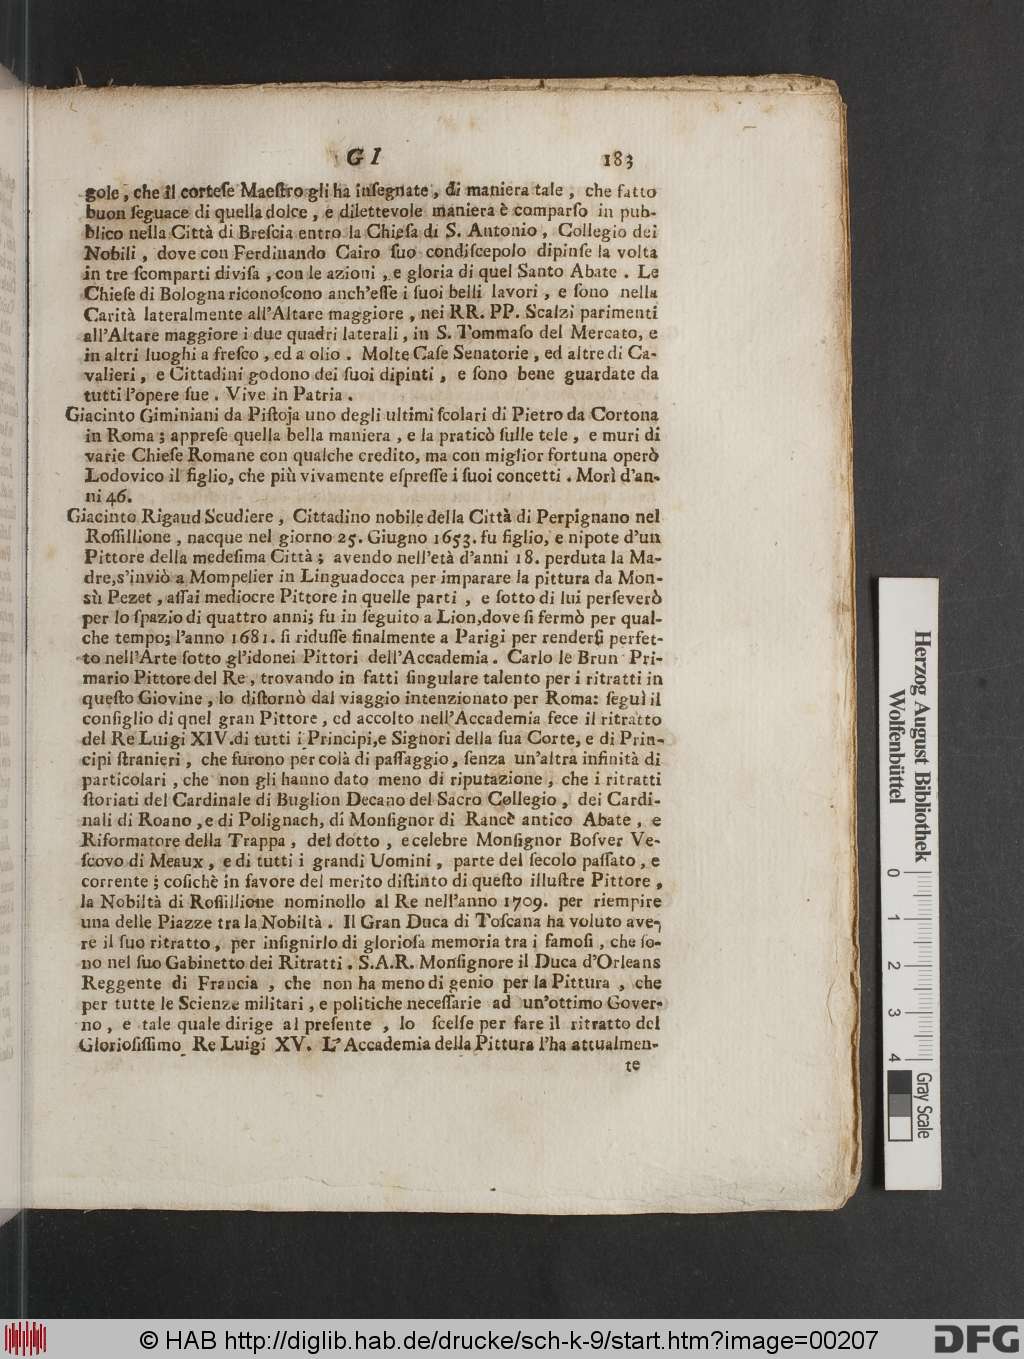 GI 183
gole, che il corteſe Maeſtro gli ha inſegnate, di maniera tale, che fatto
buon ſeguace di quella dolce, e dilettevole maniera è comparſo in pub-
blico nella Città di Breſcia entro la Chieſa di S. Antonio, Collegio dei
Nobili, dove con Ferdinando Cairo ſuo condiſcepolo dipinſe la volta
in tre ſcomparti diviſa, con le azioni, e gloria di quel Santo Abate. Le
Chieſe di Bologna riconoſcono anch'eſſe i ſuoi belli lavori, e ſono nella
Carità lateralmente all'Altare maggiore, nei RR. PP. Scalzi parimenti
all'Altare maggiore i due quadri laterali, in S. Tommaſo del Mercato, e
in altri luoghi a freſco, ed a olio. Molte Caſe Senatorie, ed altre di Ca-
valieri, e Cittadini godono dei ſuoi dipinti, e ſono bene guardate da
tutti l'opere ſue. Vive in Patria.
Giacinto Giminiani da Piſtoja uno degli ultimi ſcolari di Pietro da Cortona
in Roma; appreſe quella bella maniera, e la praticò ſulle tele, e muri di
varie Chieſe Romane con qualche credito, ma con miglior fortuna operò
Lodovico il figlio, che più vivamente eſpreſſe i ſuoi concetti. Morì d'an-
ni 46.
Giacinto Rigaud Scudiere, Cittadino nobile della Città di Perpignano nel
Roſſillione, nacque nel giorno 25. Giugno 1653. fu figlio, e nipote d'un
Pittore della medeſima Città; avendo nell'età d'anni 18. perduta la Ma-
dre, s'inviò a Mompelier in Linguadocca per imparare la pittura da Mon-
sù Pezet, aſſai mediocre Pittore in quelle parti, e ſotto di lui perſeverò
per lo ſpazio di quattro anni; fu in ſeguito a Lion, dove ſi fermò per qual-
che tempo; l'anno 1681. ſi riduſſe finalmente a Parigi per renderſi perfet-
to nell'Arte ſotto gl'idonei Pittori dell'Accademia. Carlo le Brun Pri-
mario Pittore del Re, trovando in fatti ſingulare talento per i ritratti in
queſto Giovine, lo diſtornò dal viaggio intenzionato per Roma: ſeguì il
conſiglio di qnel gran Pittore, ed accolto nell'Accademia fece il ritratto
del Re Luigi XIV. di tutti i Principi, e Signori della ſua Corte, e di Prin-
cipi ſtranieri, che furono per colà di paſſaggio, ſenza un'altra infinità di
particolari, che non gli hanno dato meno di riputazione, che i ritratti
ſtoriati del Cardinale di Buglion Decano del Sacro Collegio, dei Cardi-
nali di Roano, e di Polignach, di Monſignor di Rancè antico Abate, e
Riformatore della Trappa, del dotto, e celebre Monſignor Boſver Ve-
ſcovo di Meaux, e di tutti i grandi Uomini, parte del ſecolo paſſato, e
corrente; coſichè in favore del merito diſtinto di queſto illuſtre Pittore,
la Nobiltà di Roſſillione nominollo al Re nell'anno 1709. per riempire
una delle Piazze tra la Nobiltà. Il Gran Duca di Toſcana ha voluto ave-
re il ſuo ritratto, per inſignirlo di glorioſa memoria tra i famoſi, che ſo-
no nel ſuo Gabinetto dei Ritratti. S.A.R. Monſignore il Duca d'Orleans
Reggente di Francia, che non ha meno di genio per la Pittura, che
per tutte le Scienze militari, e politiche neceſſarie ad un'ottimo Gover-
no, e tale quale dirige al preſente, lo ſcelſe per fare il ritratto del
Glorioſiſſimo Re Luigi XV. L'Accademia della Pittura l'ha attualmen-
te
Herzog August Bibliothek
Wolfenbüttel
0 1 2 3 4
Gray Scale
© HAB http://diglib.hab.de/drucke/sch-k-9/start.htm?image=00207
DFG